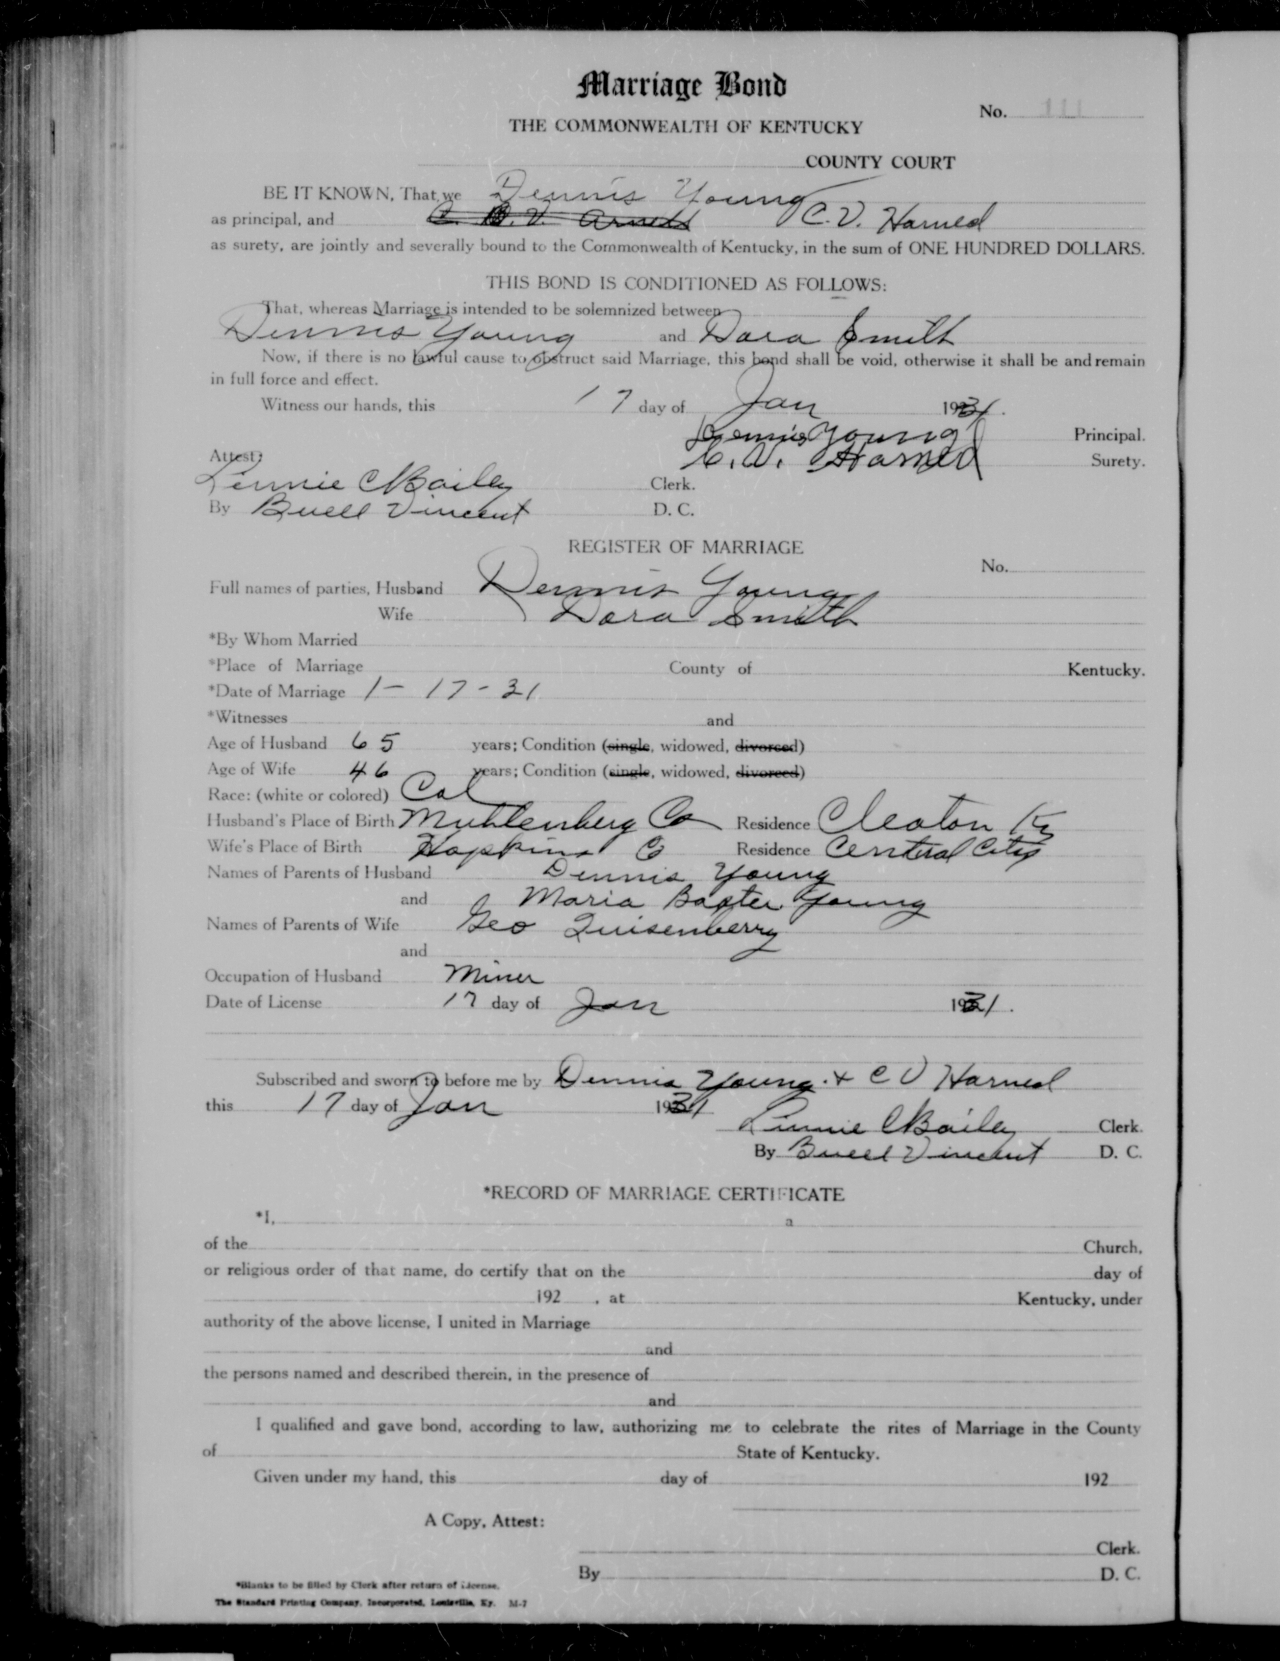 Marriage Bond
No. 111
THE COMMONWEALTH OF KENTUCKY
COUNTY COURT
BE IT KNOWN, That we Dennis Young
as principal, and C. V. Harned
as surety, are jointly and severally bound to the Commonwealth of Kentucky, in the sum of ONE HUNDRED DOLLARS.
THIS BOND IS CONDITIONED AS FOLLOWS:
That, whereas Marriage is intended to be solemnized between
Dennis Young and Dora Smith
Now, if there is no lawful cause to obstruct said Marriage, this bond shall be void, otherwise it shall be and remain
in full force and effect.
Witness our hands, this 17 day of Jan 1931.
Dennis Young Principal.
C. V. Harned Surety.
Attest:
Linnie C Bailey Clerk.
By Buell Vincent D. C.
REGISTER OF MARRIAGE
No.
Full names of parties, Husband Dennis Young
Wife Dora Smith
*By Whom Married
*Place of Marriage County of Kentucky.
*Date of Marriage 1-17-31
*Witnesses and
Age of Husband 65 years; Condition (single, widowed, divorced)
Age of Wife 46 years; Condition (single, widowed, divorced)
Race: (white or colored) Col
Husband's Place of Birth Muhlenberg Co Residence Cleaton Ky
Wife's Place of Birth Hopkins Co Residence Central City
Names of Parents of Husband Dennis Young
and Maria Baxter Young
Names of Parents of Wife Geo Quisenberry
and
Occupation of Husband Miner
Date of License 17 day of Jan 1931.
Subscribed and sworn to before me by Dennis Young. + C V Harned
this 17 day of Jan 1931
Linnie C Bailey Clerk.
By Buell Vincent D. C.
*RECORD OF MARRIAGE CERTIFICATE
*I, a
of the Church,
or religious order of that name, do certify that on the day of
192 , at Kentucky, under
authority of the above license, I united in Marriage
and
the persons named and described therein, in the presence of
and
I qualified and gave bond, according to law, authorizing me to celebrate the rites of Marriage in the County
of State of Kentucky.
Given under my hand, this day of 192
A Copy, Attest:
Clerk.
By D. C.
*Blanks to be filled by Clerk after return of License.
The Standard Printing Company, Incorporated, Louisville, Ky. M-7